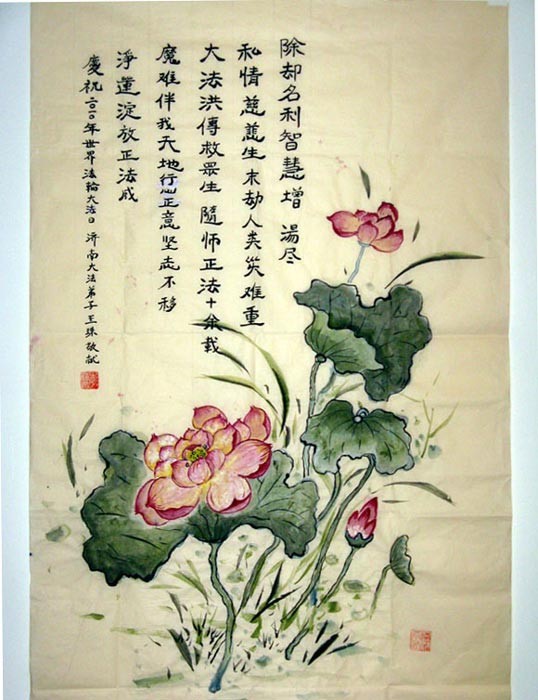 除却名利智慧增 荡尽
私情慈善生末劫人类灾难重
大法洪傳救眾生 隨师正法十余载
魔难伴我天地行正意坚志不移
淨蓮淀放正法成
慶祝二〇一〇年世界法輪大法日 济南大法弟子王珠敬献